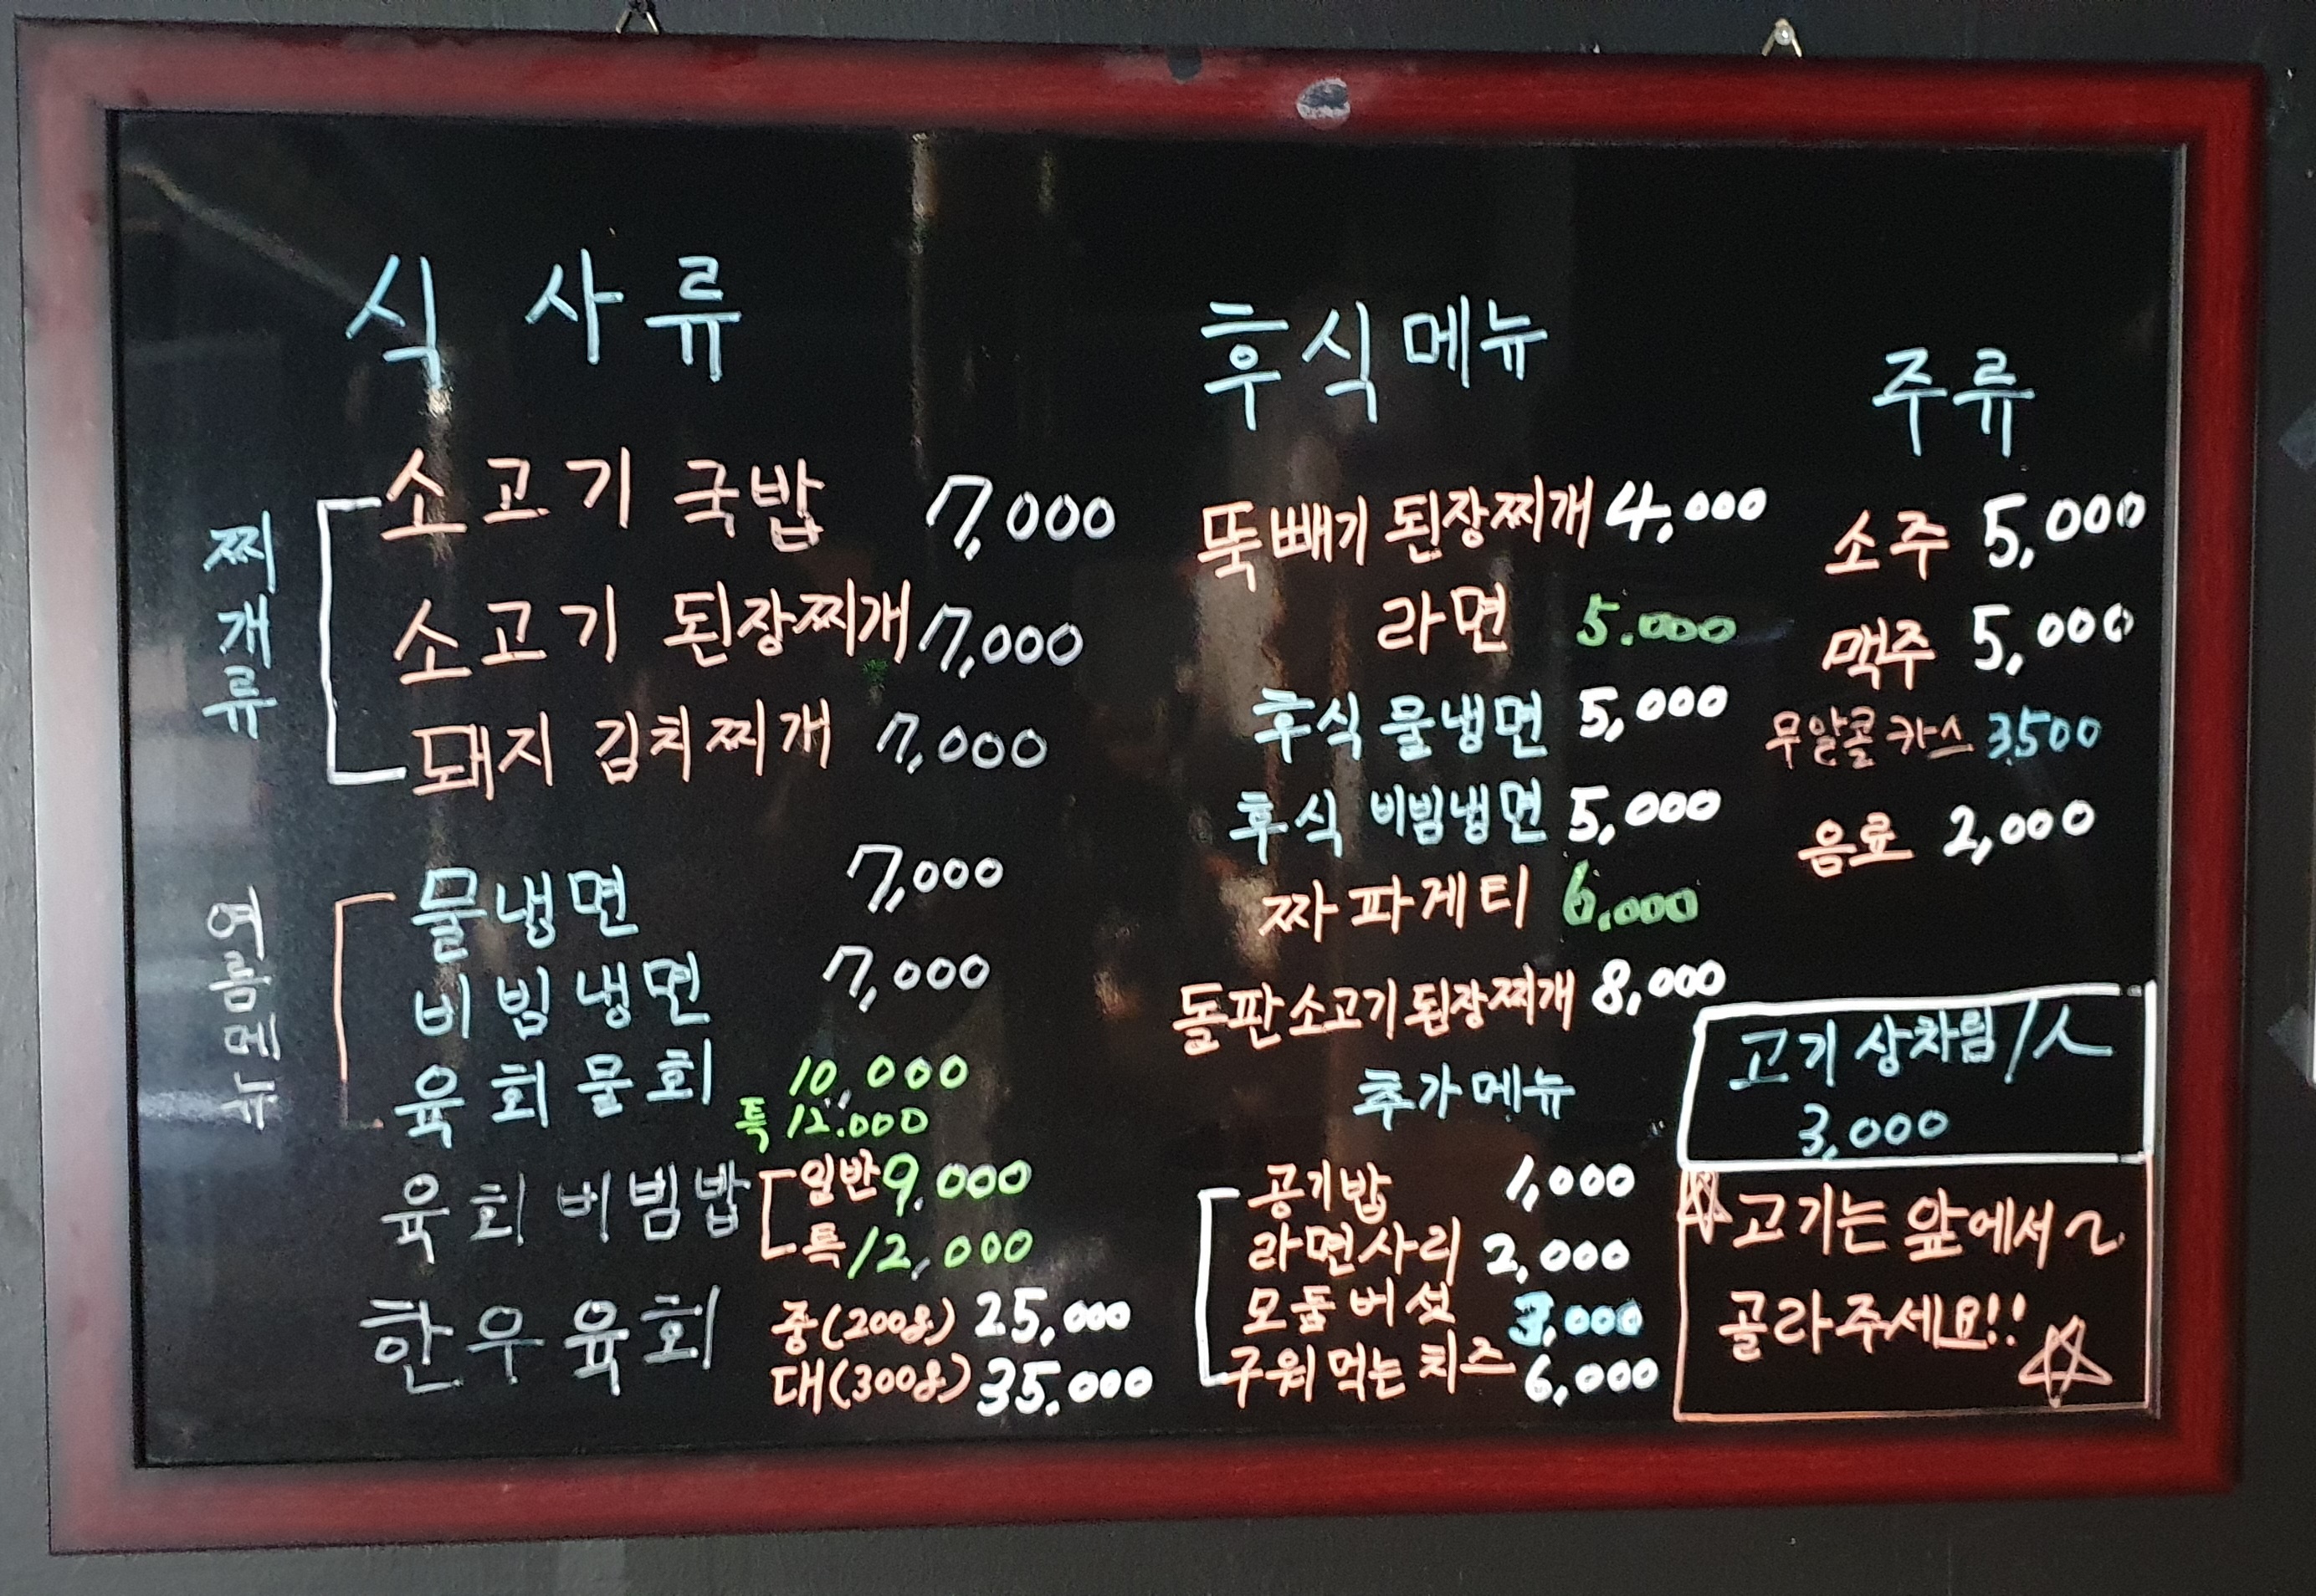 식사류
찌개류
소고기 국밥 7,000
소고기 된장찌개 7,000
돼지 김치찌개 7,000
여름메뉴
물냉면 7,000
비빔냉면 7,000
육회물회 10,000
특 12.000
육회비빔밥 일반 9,000
특 12,000
한우육회 중(200g) 25,000
대(300g) 35,000
후식메뉴
뚝빼기 된장찌개 4,000
라면 5.000
후식 물냉면 5,000
후식 비빔냉면 5,000
짜파게티 6,000
돌판소고기 된장찌개 8,000
추가메뉴
공기밥 1,000
라면사리 2,000
모둠버섯 3,000
구워먹는 치즈 6,000
주류
소주 5,000
맥주 5,000
무알콜 카스 3,500
음료 2,000
고기 상차림/人
3,000
☆고기는 앞에서~
골라주세요!! ☆